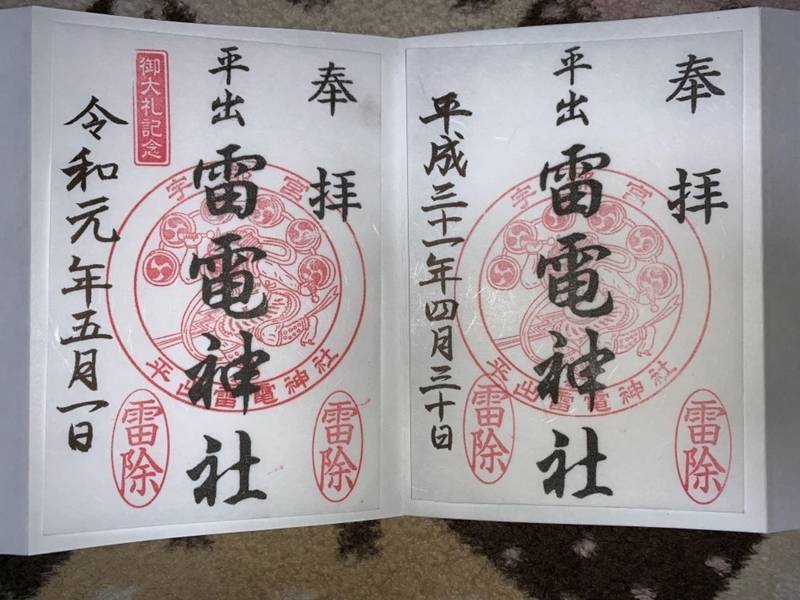 奉拝
平出
雷電神社
平成三十一年四月三十日
宇
宮
平出雷電神社
雷除
雷除
奉拝
平出
雷電神社
御大礼記念
令和元年五月一日
宇
宮
平出雷電神社
雷除
雷除